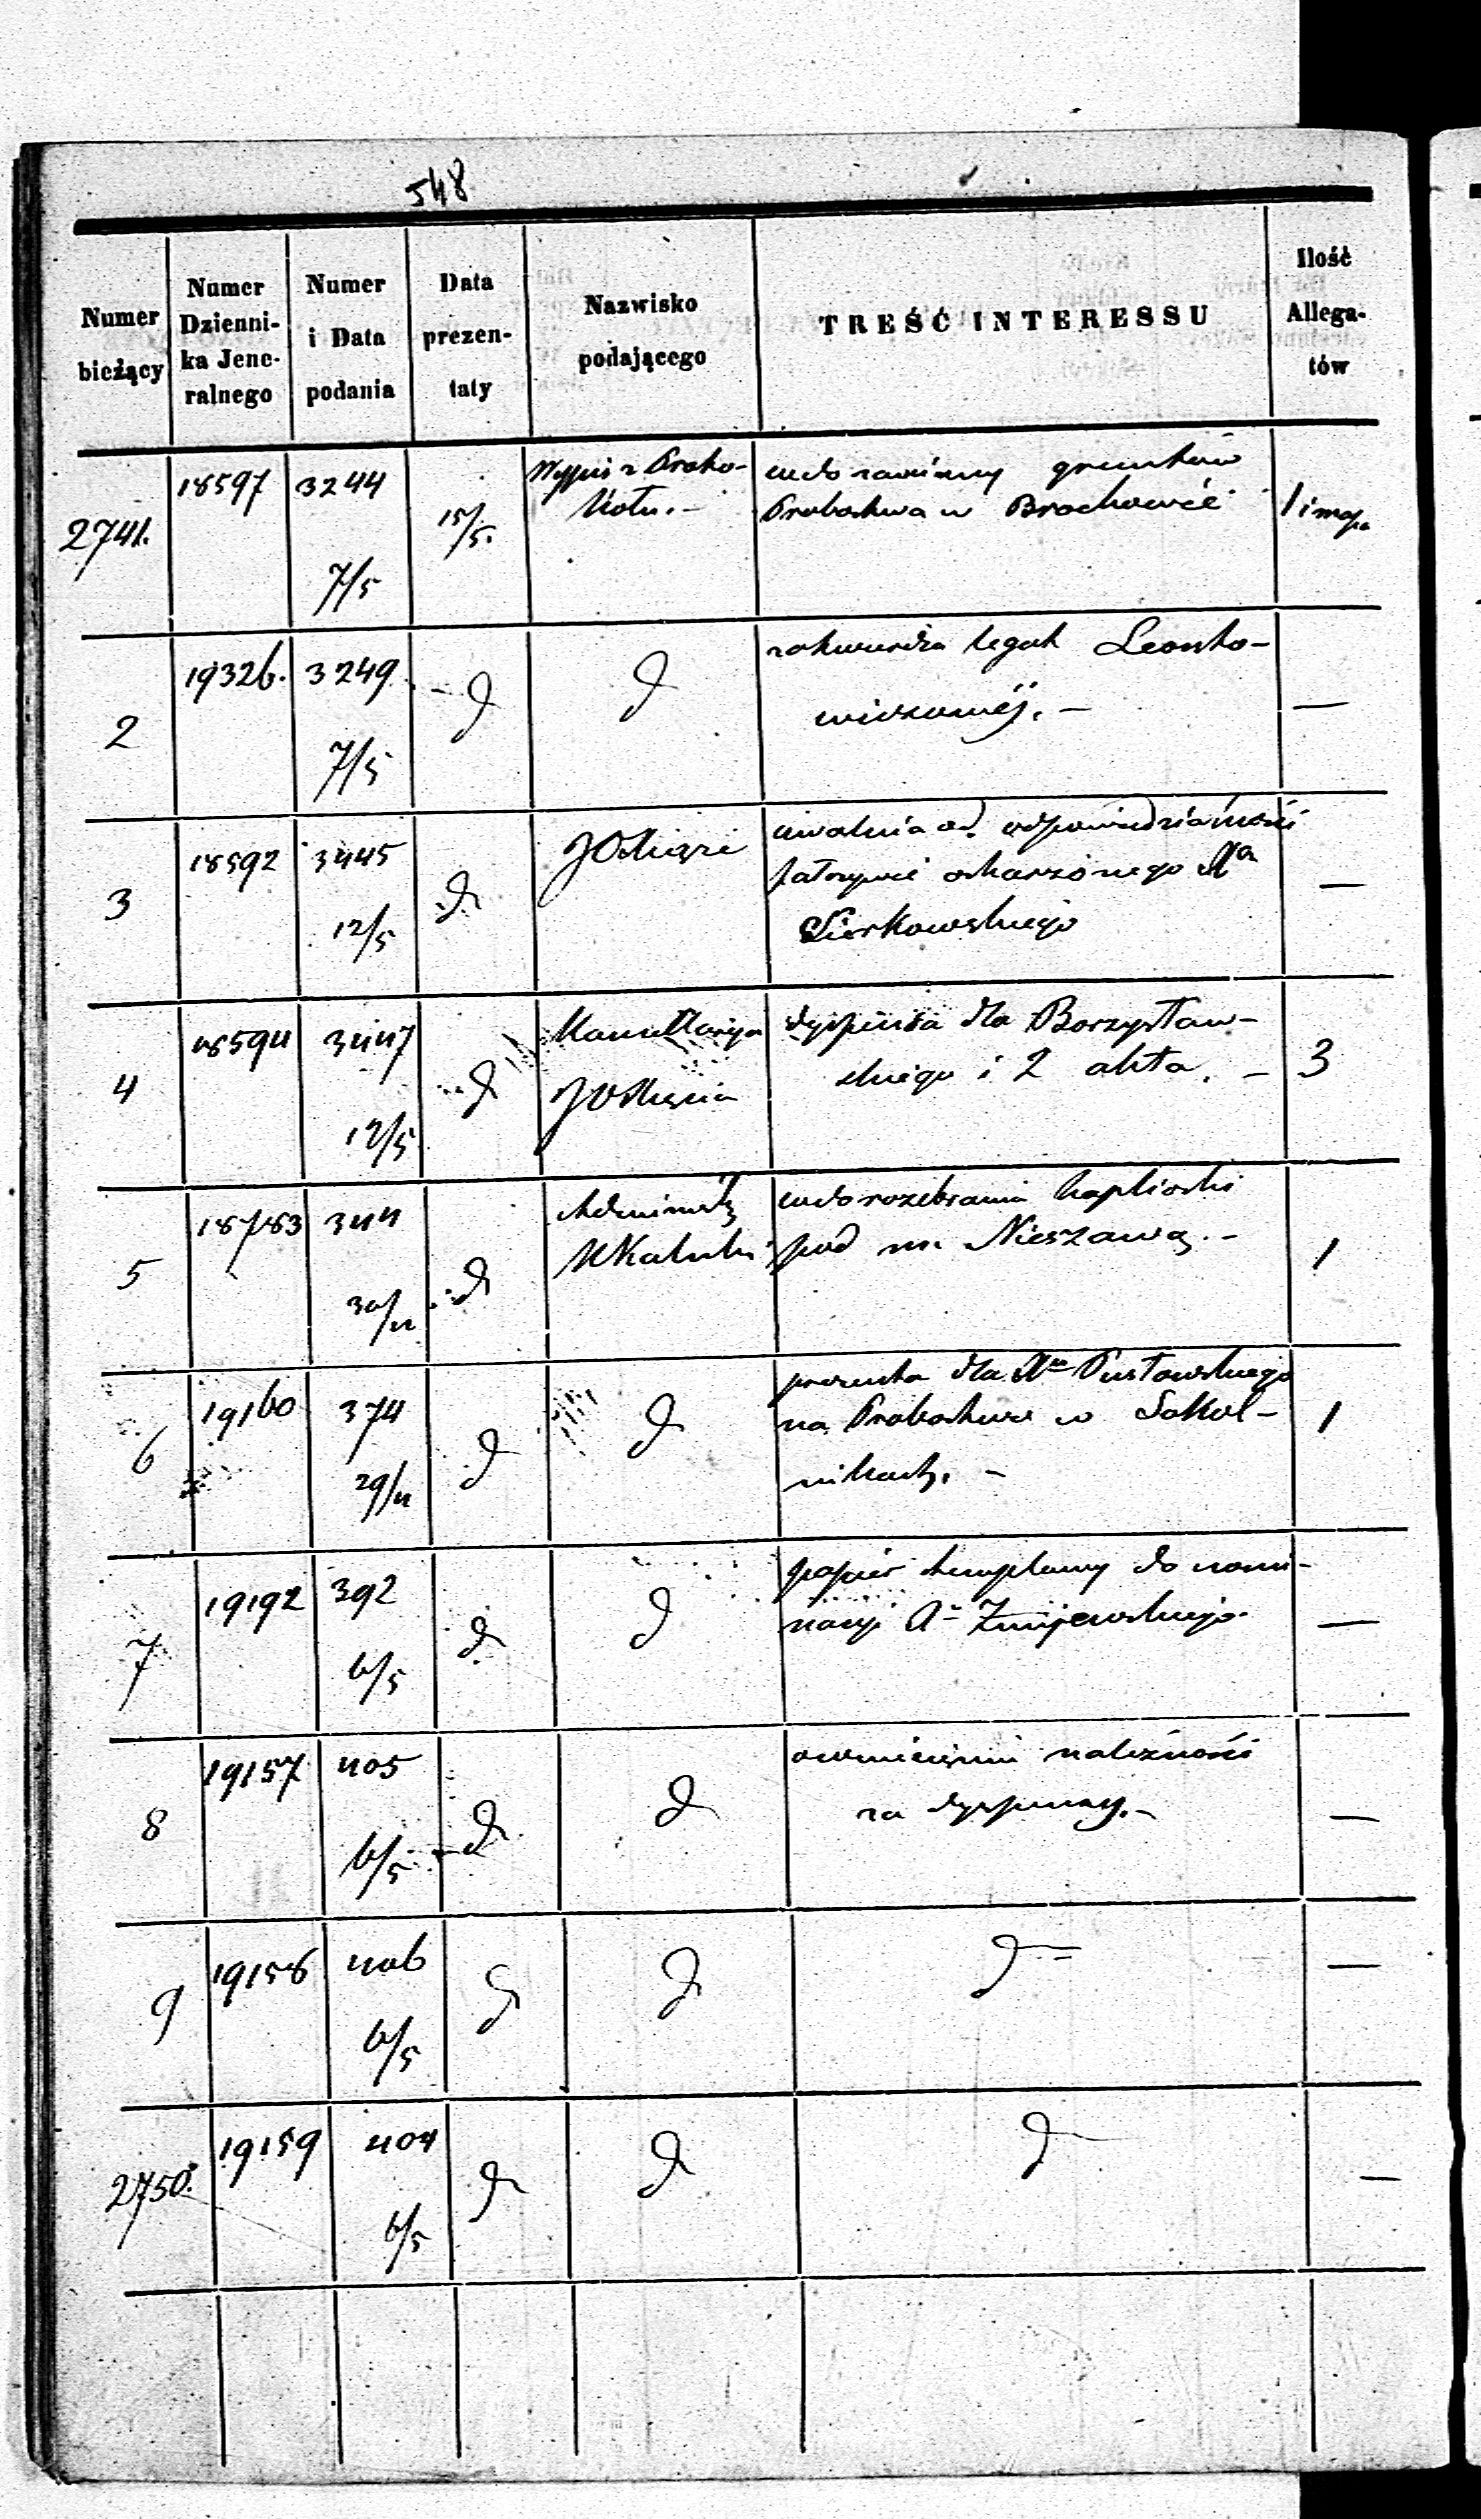 548
Numer
bieżący
Numer
Dzienni-
ka Jene-
ralnego
Numer
i Data
podania
Data
prezen-
taty
Nazwisko
podającego
TREŚĆ INTERESSU
Ilość
Allega-
tów
2741.
18597
3244
7/5
15/5.
Wypis z Proto-
kołu.-
wdo zamiany gruntów
Probostwa w Brochowie
1 i map.
2
19326.
3249
7/5
d
d
zatwierdza legat Leonto-
wiczowéj. -
—
3
18592
3445
12/5
d
JOXięże
uwalnia od odpowiedzialności
fałszywie oskarżonego Xa
Sierkowskiego
—
4
18594
3447
12/5
d
Kancellarya
JOXięcia
dyspensa dla Borzysław-
skiego i 2 akta. -
3
5
18783
344
30/4
d
Administr
wdo rozebrania kapliczki
pod m. Nieszawą. -
1
6
19160
374
29/4
d
d
prezenta dla Xa Pustowskiego
na Probostwo w Sokol-
nikach. -
1
7
19192
392
6/5
d
d
papier stemplowy do nomi-
nacyi Xa Żmijewskiego.
—
8
19157
405
6/5
d
d
należności
za dyspensy. -
—
9
19158
406
6/5
d
d
d
—
2750.
19159
404
6/5
d
d
d
—